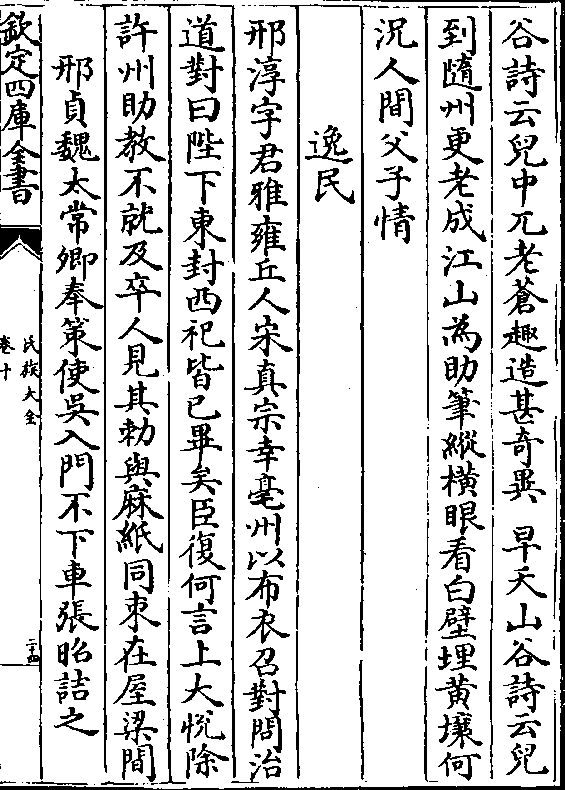 谷詩云兒中兀老蒼趣造甚奇異　早夭山谷詩云兒
到隨州更老成江山為助筆縱橫眼看白壁埋黃壤何
況人間父子情
逸民
邢淳字君雅雍丘人宋真宗幸亳州以布衣召對問治
道對曰陛下東封西祀皆已畢矣臣復何言上大悅除
許州助教不就及卒人見其勅與麻紙同束在屋梁間
邢貞魏太常卿奉策使吳入門不下車張昭詰之
欽定四庫全書
氏族大全
卷十
二十四